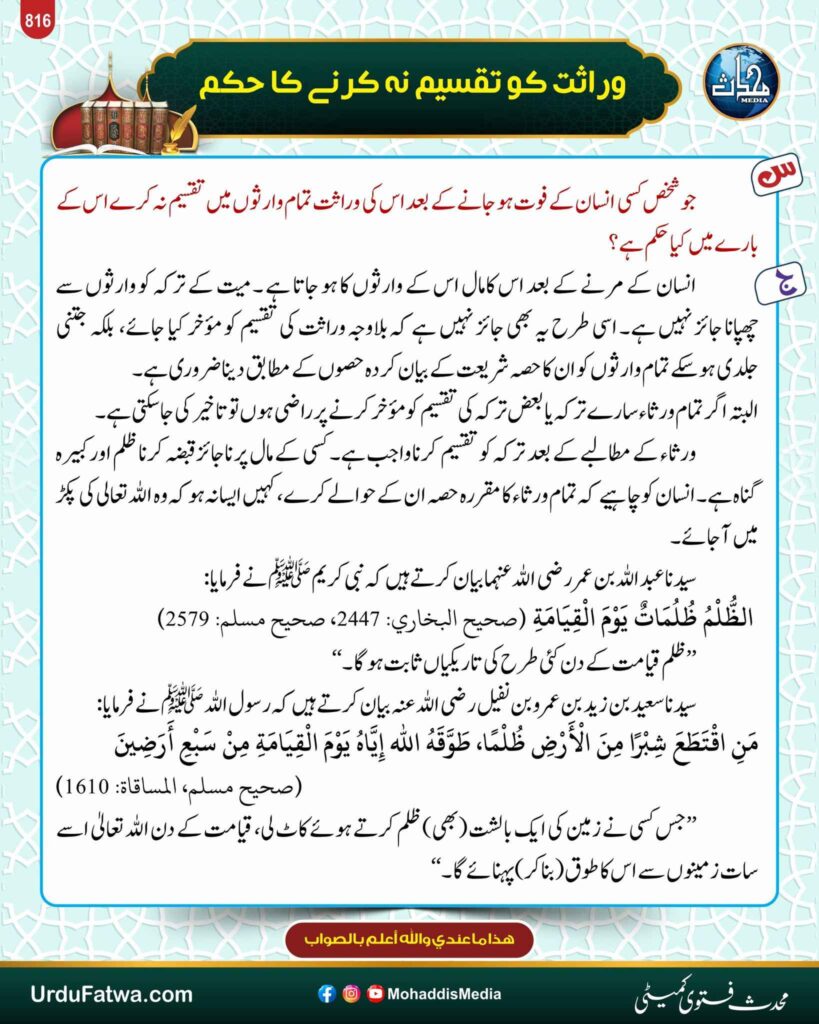 816
وراثت کو تقسیم نہ کرنے کا حکم
محدث
MEDIA
س
جو شخص کسی انسان کے فوت ہو جانے کے بعد اس کی وراثت تمام وارثوں میں تقسیم نہ کرے اس کے
بارے میں کیا حکم ہے؟
ج
انسان کے مرنے کے بعد اس کا مال اس کے وارثوں کا ہو جاتا ہے۔ میت کے ترکہ کو وارثوں سے
چھپانا جائز نہیں ہے۔ اسی طرح یہ بھی جائز نہیں ہے کہ بلاوجہ وراثت کی تقسیم کو مؤخر کیا جائے، بلکہ جتنی
جلدی ہو سکے تمام وارثوں کو ان کا حصہ شریعت کے بیان کردہ حصوں کے مطابق دینا ضروری ہے۔
البتہ اگر تمام ورثاء سارے ترکہ یا بعض ترکہ کی تقسیم کو مؤخر کرنے پر راضی ہوں تو تاخیر کی جاسکتی ہے۔
ورثاء کے مطالبے کے بعد ترکہ کو تقسیم کرنا واجب ہے۔ کسی کے مال پر ناجائز قبضہ کرنا ظلم اور کبیرہ
گناہ ہے۔ انسان کو چاہیے کہ تمام ورثاء کا مقررہ حصہ ان کے حوالے کرے، کہیں ایسا نہ ہو کہ وہ اللہ تعالی کی پکڑ
میں آ جائے۔
سیدنا عبد اللہ بن عمر رضی اللہ عنہما بیان کرتے ہیں کہ نبی کریم ﷺ نے فرمایا:
الظُّلْمُ ظُلُمَاتٌ يَوْمَ الْقِيَامَةِ (صحيح البخاري: 2447، صحيح مسلم: 2579)
”ظلم قیامت کے دن کئی طرح کی تاریکیاں ثابت ہو گا۔“
سیدنا سعید بن زید بن عمرو بن نفیل رضی اللہ عنہ بیان کرتے ہیں کہ رسول اللہ ﷺ نے فرمایا:
مَنِ اقْتَطَعَ شِبْرًا مِنَ الْأَرْضِ ظُلْمًا، طَوَّقَهُ الله إِيَّاهُ يَوْمَ الْقِيَامَةِ مِنْ سَبْعِ أَرَضِينَ
(صحيح مسلم، المساقاة: 1610)
”جس کسی نے زمین کی ایک بالشت (بھی) ظلم کرتے ہوئے کاٹ لی، قیامت کے دن اللہ تعالیٰ اسے
سات زمینوں سے اس کا طوق (بنا کر) پہنائے گا۔“
هذا ما عندي والله أعلم بالصواب
UrduFatwa.com
MohaddisMedia
محدث فتویٰ کمیٹی